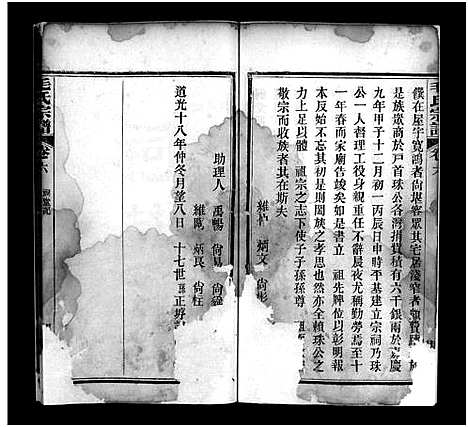 毛氏宗譜
僕在屋宇寬濶者尚堪容眾其宅居淺窄者頒費
是族眾商於戶首球公各灣捐貲積有六千銀兩於嘉慶
九年甲子十二月初一丙辰日申時平基建立宗祠乃珠
公一人督理工役身親重任不辭晨夜尤稱勤勞焉至十
一年春而家廟告竣矣如是書立 祖先牌位以彰明報
本反始不則固閤族之孝思也然亦全賴珠公之
力上足以體 祖宗之志下使子子孫孫尊
敬宗而收族者其在斯夫
維 炳文 尚彬
助理人 禹暢 尚 尚
維 炳良 尚柱
道光十八年仲冬月望八日 十七世孫正
毛氏宗譜 卷六 祠堂記